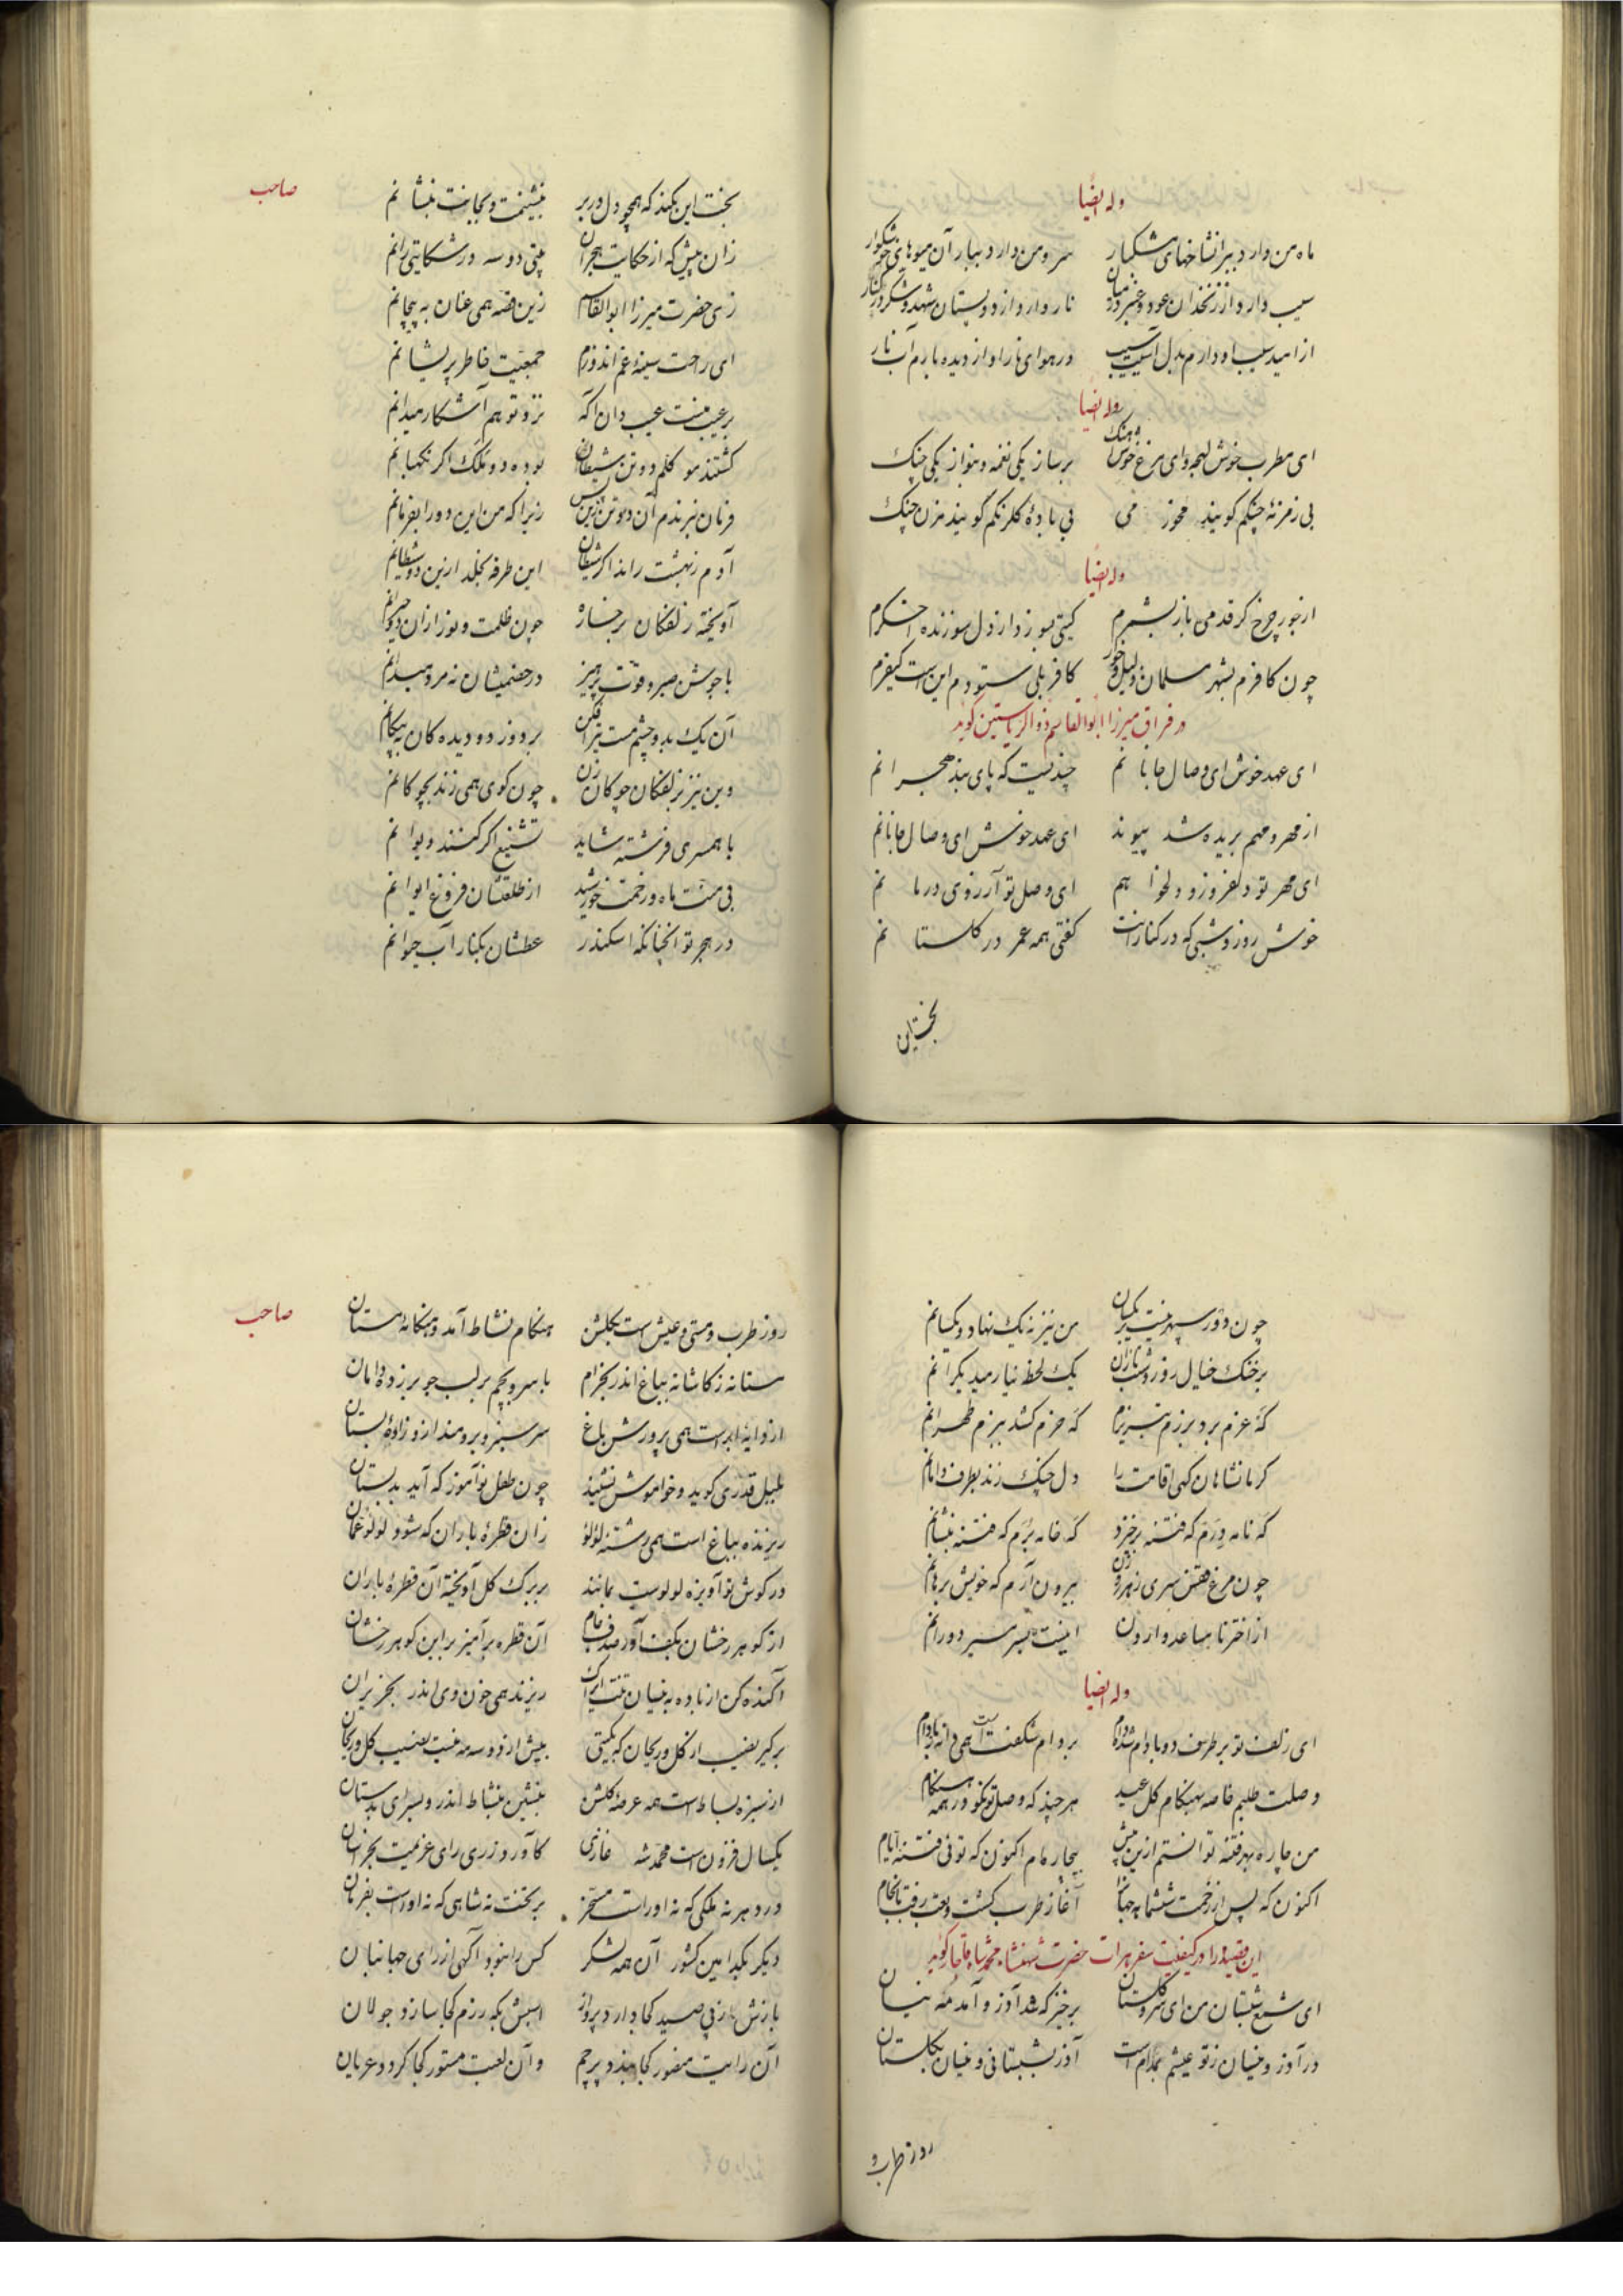 وله ایضاً
ماه من دارد ببر از شاخهای مشکبار سرو من دارد ببار آن میوهای خوشکوار
سیب دارد از زنخدان عود و عنبر در میان نار دارد از دو پستان شهد و شکر در کنار
از امید سیب او دارم بدل آسیب سیب در هوای نار او از دیده بارم آب نار
وله ایضاً
ای مطرب خوش لهجه و ای مرغ خوش آهنک برساز یکی نغمه و بنواز یکی چنک
بی زمزمهٔ چنکم کویند مخور می بی بادهٔ کلرنکم کویند مزن چنک
وله ایضاً
از جور چرخ کر قدمی باز بشمرم کیتی بسوزد از دل سوزنده اخکرم
چون کافرم بشهر مسلمان ذلیل و خوار کافر بلی ستوده‌ام این است کیفرم
در فراق میرزا ابوالقاسم ذوالریاستین کوید
ای عهد خوش ای وصال جانانم چندیست که پای بند هجرانم
از مهر و مهم بریده شد پیوند ای عهد خوش ای وصال جانانم
ای مهر تو دلفروز و دلخواهم ای وصل تو آرزوی درمانم
خوش روز و شبی که در کنارانت کفتی همه عمر در کلستانم
بخت این
صاحب
بخت این نکند که همچو دل در بر بنشینمت و بجانت بنشانم
زان پیش که از حکایت هجران بیتی دو سه در شکایتی رانم
زی حضرت میرزا ابوالقاسم زین قصه همی عنان به پیچانم
ای راحت سینهٔ غم اندوزم جمعیت خاطر پریشانم
بر عیب منت عیب دان آکه نزد تو هم آشکار میدانم
کشتند موکلم دو تن شیطان بوده دو ملک اکر نکهبانم
فرمان نبرندم آن دو تن زین پس زیرا که من این دو را بفرمانم
آدم ز بهشت راند اکر شیطان این طرفه بخلد ازین دو شیطانم
آویخته زلفکان بر خساره چون ظلمت و نور ازان دو حیرانم
با جوشن صبر و قوت پرهیز در خصمیشان نه مرد میدانم
آن یک بدو چشم مست تیرافکن بر دوزد دو دیده کان به پیکانم
وین نیز بزلفکان چوکان زن چون کوی همی زند بچوکانم
با همسری فرشته شاید تشنیع اکر کنند دیوانم
بی منت ماه و زحمت خورشید از طلعتشان فروغ ایوانم
در هجر تو آنچنانکه اسکندر عطشان بکنار آب حیوانم
چون دور سپهر نیست یکسان من نیز نه نیک نهاد و یکسانم
بر خنک خیال روز و شب تازان یک لحظه نیارمید یکرانم
که عزم برد برزم تبریزم که حزم کشد ببزم طهرانم
کرمانشاهان کهی اقامت را دل چنک زند بطرف دامانم
که نامه درم که فتنه برخیزد که خامه برم که فتنه بنشانم
چون مرغ قفس سری ز هر روزن بیرون آرم که خویش برهانم
از اختر نامساعد وارون اینست بسر مسیر دورانم
وله ایضاً
ای زلف تو بر طرف دو بادام شده دام بر دام شکفت است همی دانه ز بادام
وصلت طلبم خاصه بهنکام کل عید هر چند که وصل تو نکو در همه هنکام
من چاره بهر فتنه توانستم ازین پیش بیچاره‌ام اکنون که توئی فتنهٔ ایام
اکنون که پس از زحمت ششماهه جهانرا آغاز طرب کشت و تعب رفت بانجام
این قصیده را در کیفیت سفر هرات حضرت شهنشاه محمد شاه قاجار کوید
ای شمع شبستان من ای سرو کلستان برخیز که شد آذر و آمد مه نیسان
در آذر و نیسان ز تو عیشم بمدام است آذر بشبستانی و نیسان بکلستان
روز طرب و
صاحب
روز طرب و مستی و عیش است بکلشن هنکام نشاط آمد و هنکامهٔ مستان
مستانه ز کاشانه بباغ اندر بخرام با سرو بچم بر لب جو بر زده دامان
از دایهٔ ابر است همی پرورش باغ سرسبز و برومند ازو زادهٔ بستان
بلبل قدری کوید و خواموش نشیند چون طفل نوآموز که آید بدبستان
ریزنده بباغ است همی رشتهٔ لؤلؤ زان قطرهٔ باران که شود لؤلؤ عمان
در کوش نوآویزه لولوست بمانند بر برک کل آویخته آن قطرهٔ باران
از کوهر رخشان بکف آور صدف جام آن قطره برآمیز بر این کوهر رخشان
آکنده کن از باده به نیسان تنت ایرا ک ریزند همی خون وی اندر بحزیران
برکیر نصیب از کل و ریحان که بکیتی بیش از دو سه مه نیست نصیب کل و ریحان
از سبزه بساط است همه عرصهٔ کلشن بنشین بنشاط اندر و بسرای بدستان
یکسال فزون است محمد شه غازی کاورد ز ری رای عزیمت بخراسان
در دهر نه ملکی که نه او راست مسخر بر تخت نه شاهی که نه او راست بفرمان
دیکر بکدامین کشور آن همه لشکر کس را نبود آکهی از رای جهانبان
بازش ز پی صید کجا دارد پرواز اسبش بکه رزم کجا سازد جولان
آن رایت منصور کجا بندد پرچم و آن لعبت مستور کجا کردد عریان